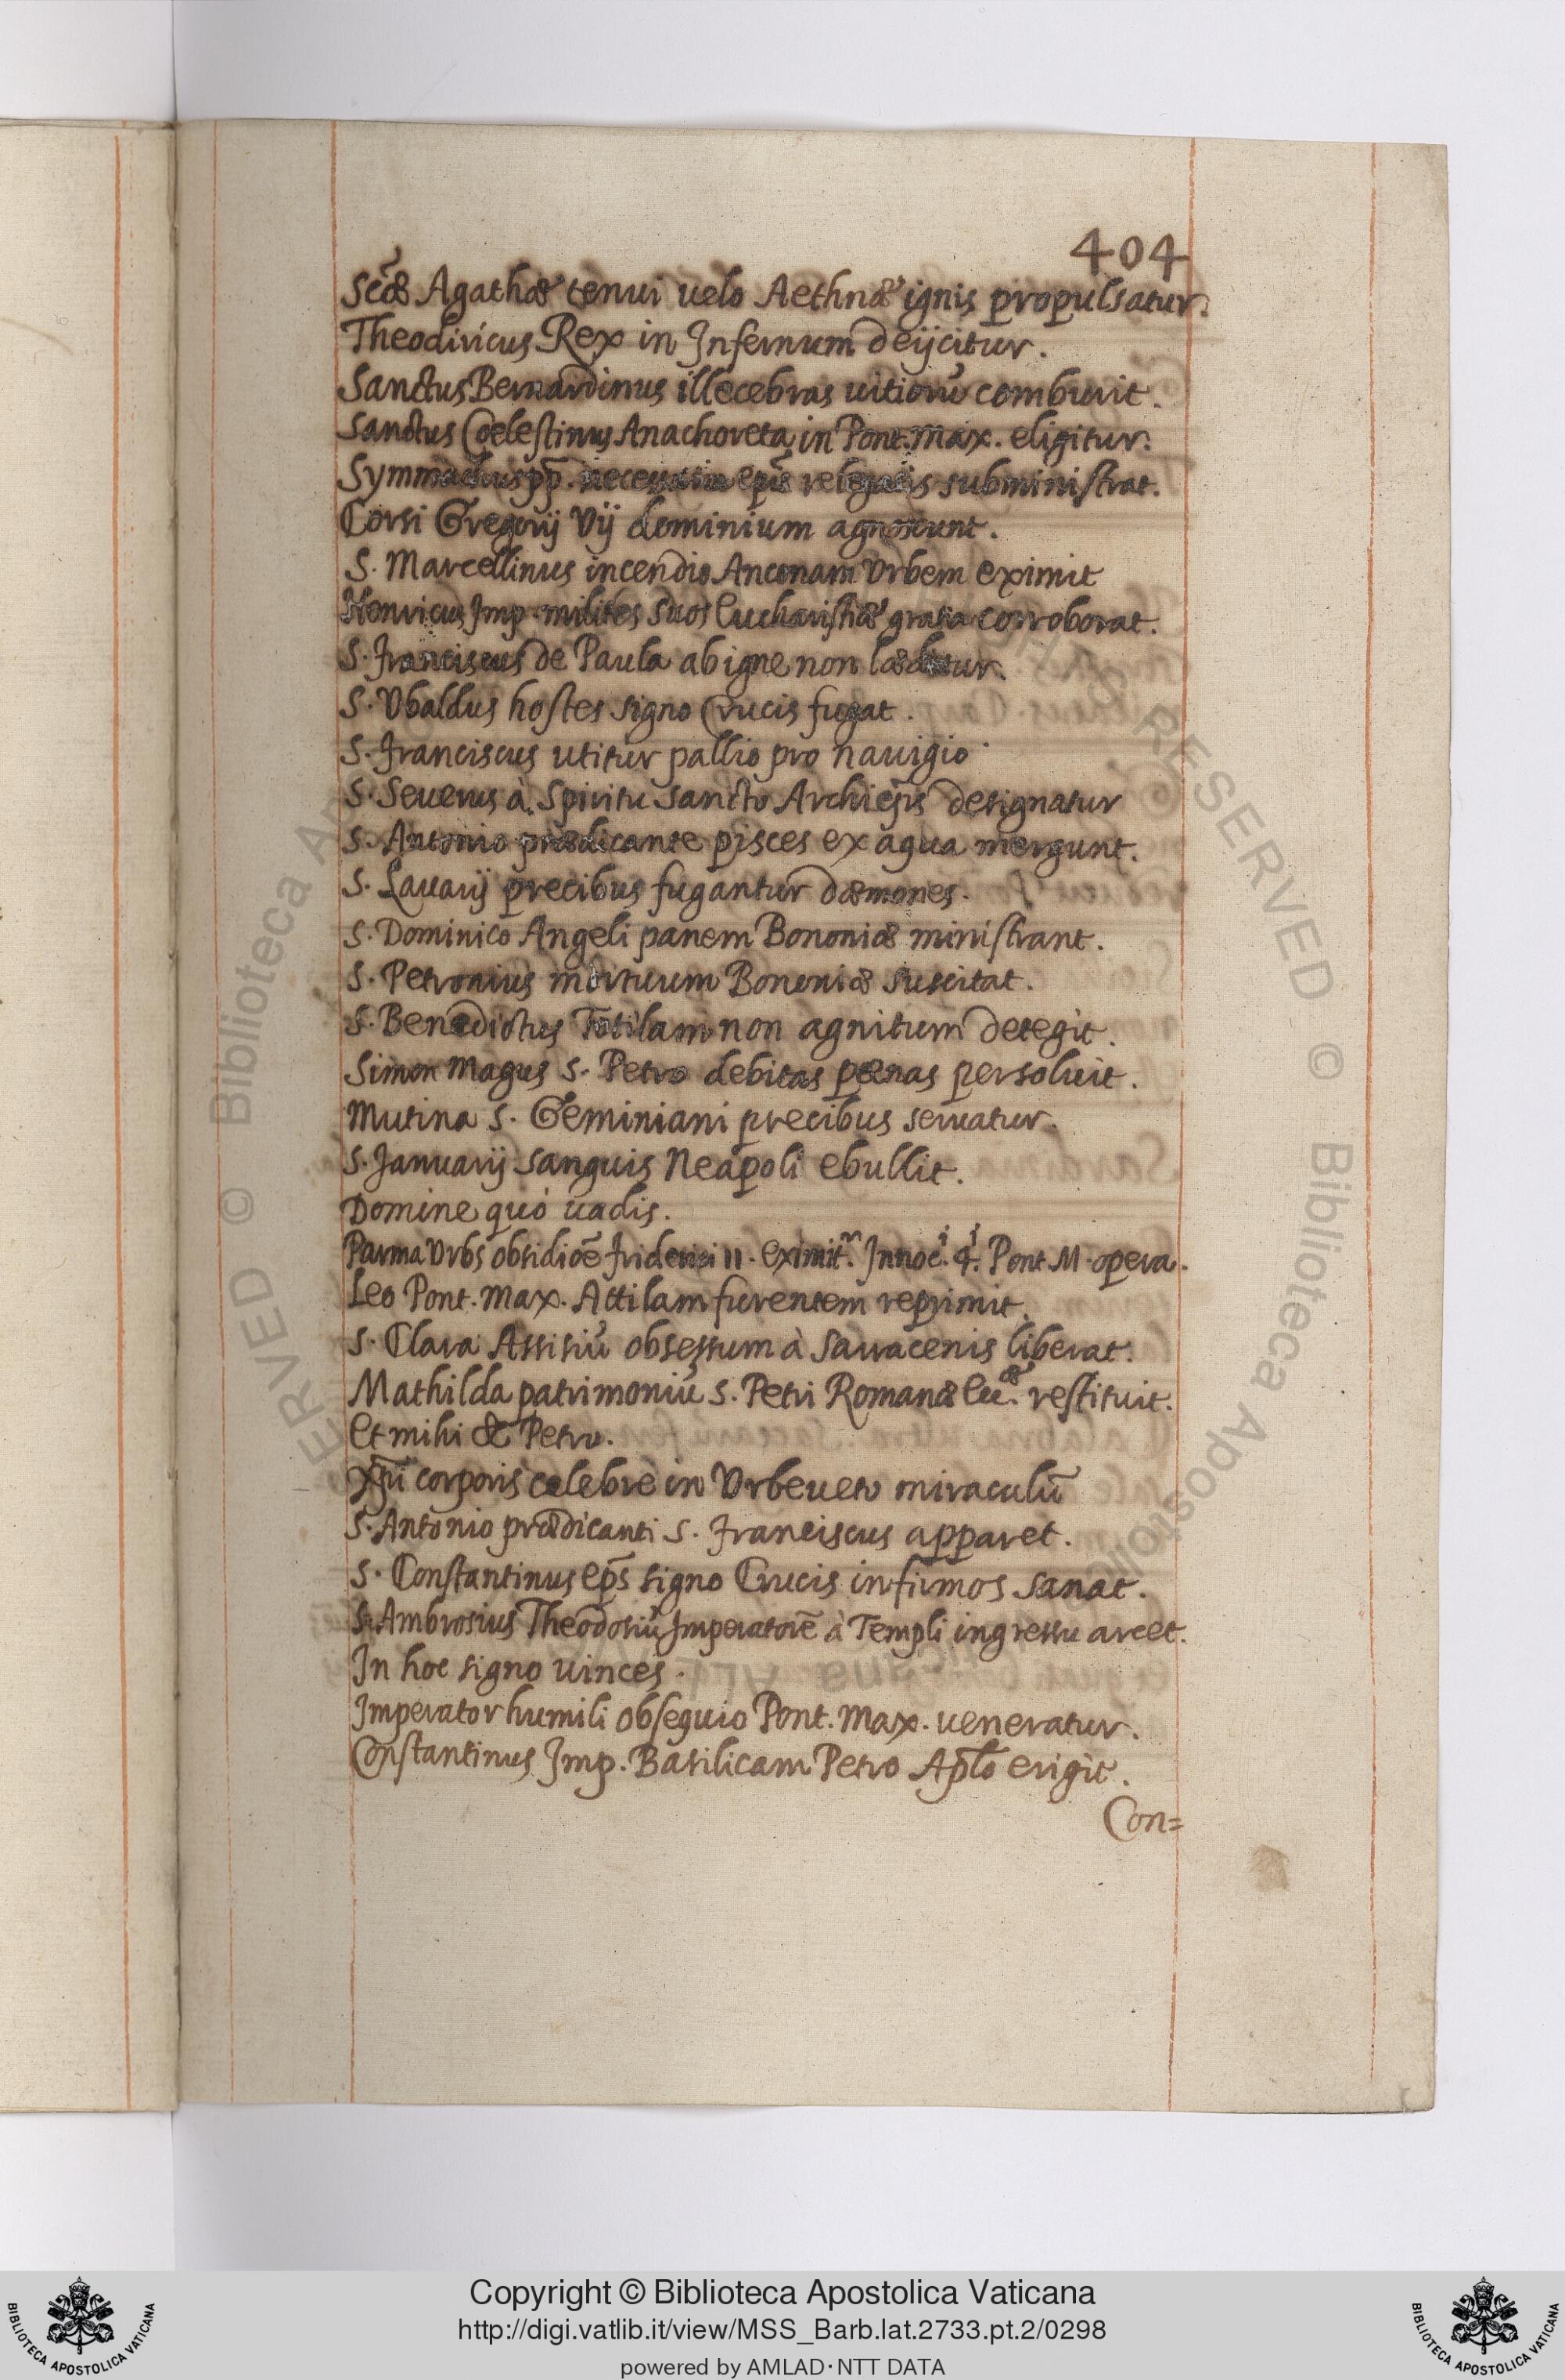 404
Sctæ Agathæ tenui uelo Aethnæ ignis propulsatur.
Theodiricus Rex in Infernum deijcitur.
Sanctus Bernardinus illecebras uitiorū comburit.
Sanctus Coelestinus Anachoreta in Pont. Max. eligitur.
Symmachus pp. necessaria ep̄is relegatis subministrat.
Corsi Gregorij Vij dominium agnoscunt.
S. Marcellinus incendio Anconam Vrbem eximit
Henricus Imp. milites suos Eucharistiæ gratia corroborat.
S. Franciscus de Paula ab igne non læditur.
S. Vbaldus hostes signo Crucis fugat.
S. Franciscus utitur pallio pro nauigio.
S. Seuerus à Spiritu Sancto Archiep̄s designatur
S. Antonio prædicante pisces ex aqua mergunt.
S. Lauarij precibus fugantur dæmones.
S. Dominico Angeli panem Bononiæ ministrant.
S. Petronius mortuum Bononiæ suscitat.
S. Benedictus Totilam non agnitum detegit.
Simon Magus S. Petro debitas pœnas persoluit.
Mutina S. Geminiani precibus seruatur.
S. Januarij sanguis Neapoli ebullit.
Domine quò uadis.
Parma Vrbs obsidiōe Friderici II. eximit.ʳ Innoc.ⁱ 4.ⁱ Pont. M. opera.
Leo Pont. Max. Attilam furentem reprimit.
S. Clara Assisiū obsessum à Sarracenis liberat.
Mathilda patrimoniū S. Petri Romanæ Ec.æ restituit.
Et mihi & Petro.
Xp̄i corporis celebre in Vrbeueto miraculū
S. Antonio prædicanti S. Franciscus apparet.
S. Constantinus ep̄s signo Crucis infirmos sanat.
S. Ambrosius Theodosiū Imperatorē à Templi ingressu arcet.
In hoc signo uinces.
Imperator humili obsequio Pont. Max. ueneratur.
Constantinus Imp. Basilicam Petro Aplō erigit.
Con=
ERVED © Biblioteca Ap
RESERVED © Biblioteca Apostolic
Copyright © Biblioteca Apostolica Vaticana
http://digi.vatlib.it/view/MSS_Barb.lat.2733.pt.2/0298
powered by AMLAD·NTT DATA
BIBLIOTECA APOSTOLICA VATICANA
BIBLIOTECA APOSTOLICA VATICANA